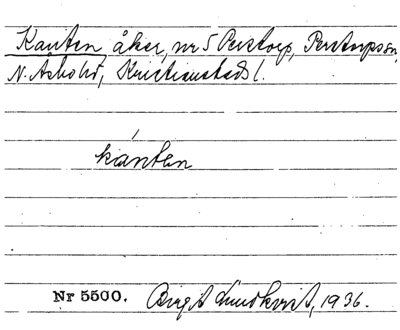 Kanten åker, nr 5 Perstorp, Perstorps sn,
N. Åsbohd, Kristianstads l.
kánten
Nr 5500. Birgit Lundkvist, 1936.